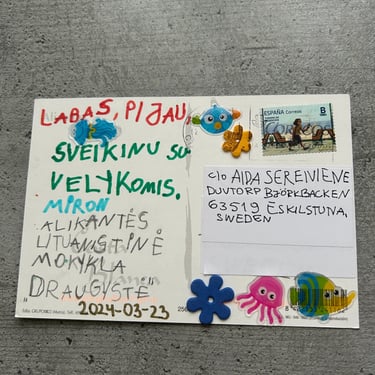 LABAS, PIJAU,
SVEIKINU SU
VELYKOMIS.
MIRON
ALIKANTĖS
LITUANISTINĖ
MOKYKLA
„DRAUGYSTĖ"
2024-03-23
ESPAÑA Correos
B
c/o AIDA SEREIVIENE
DUVTORP BJÖRKBACKEN
63519 ESKILSTUNA,
SWEDEN